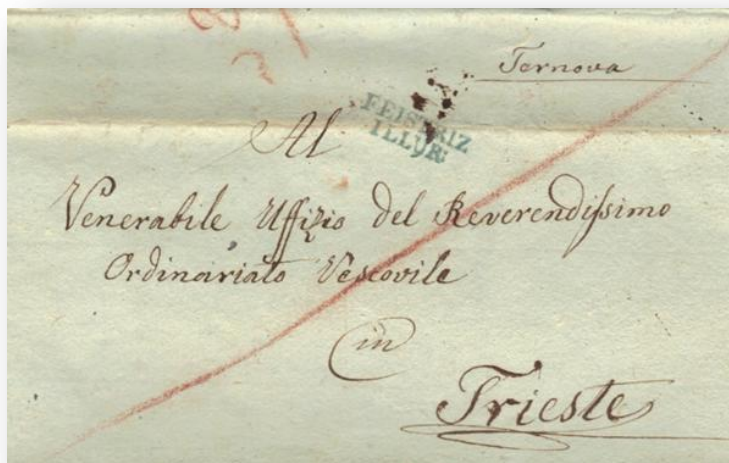 Ternova
FEISTRIZ
ILLYR:
Al
Venerabile Uffizio del Reverendissimo
Ordinariato Vescovile
in
Trieste